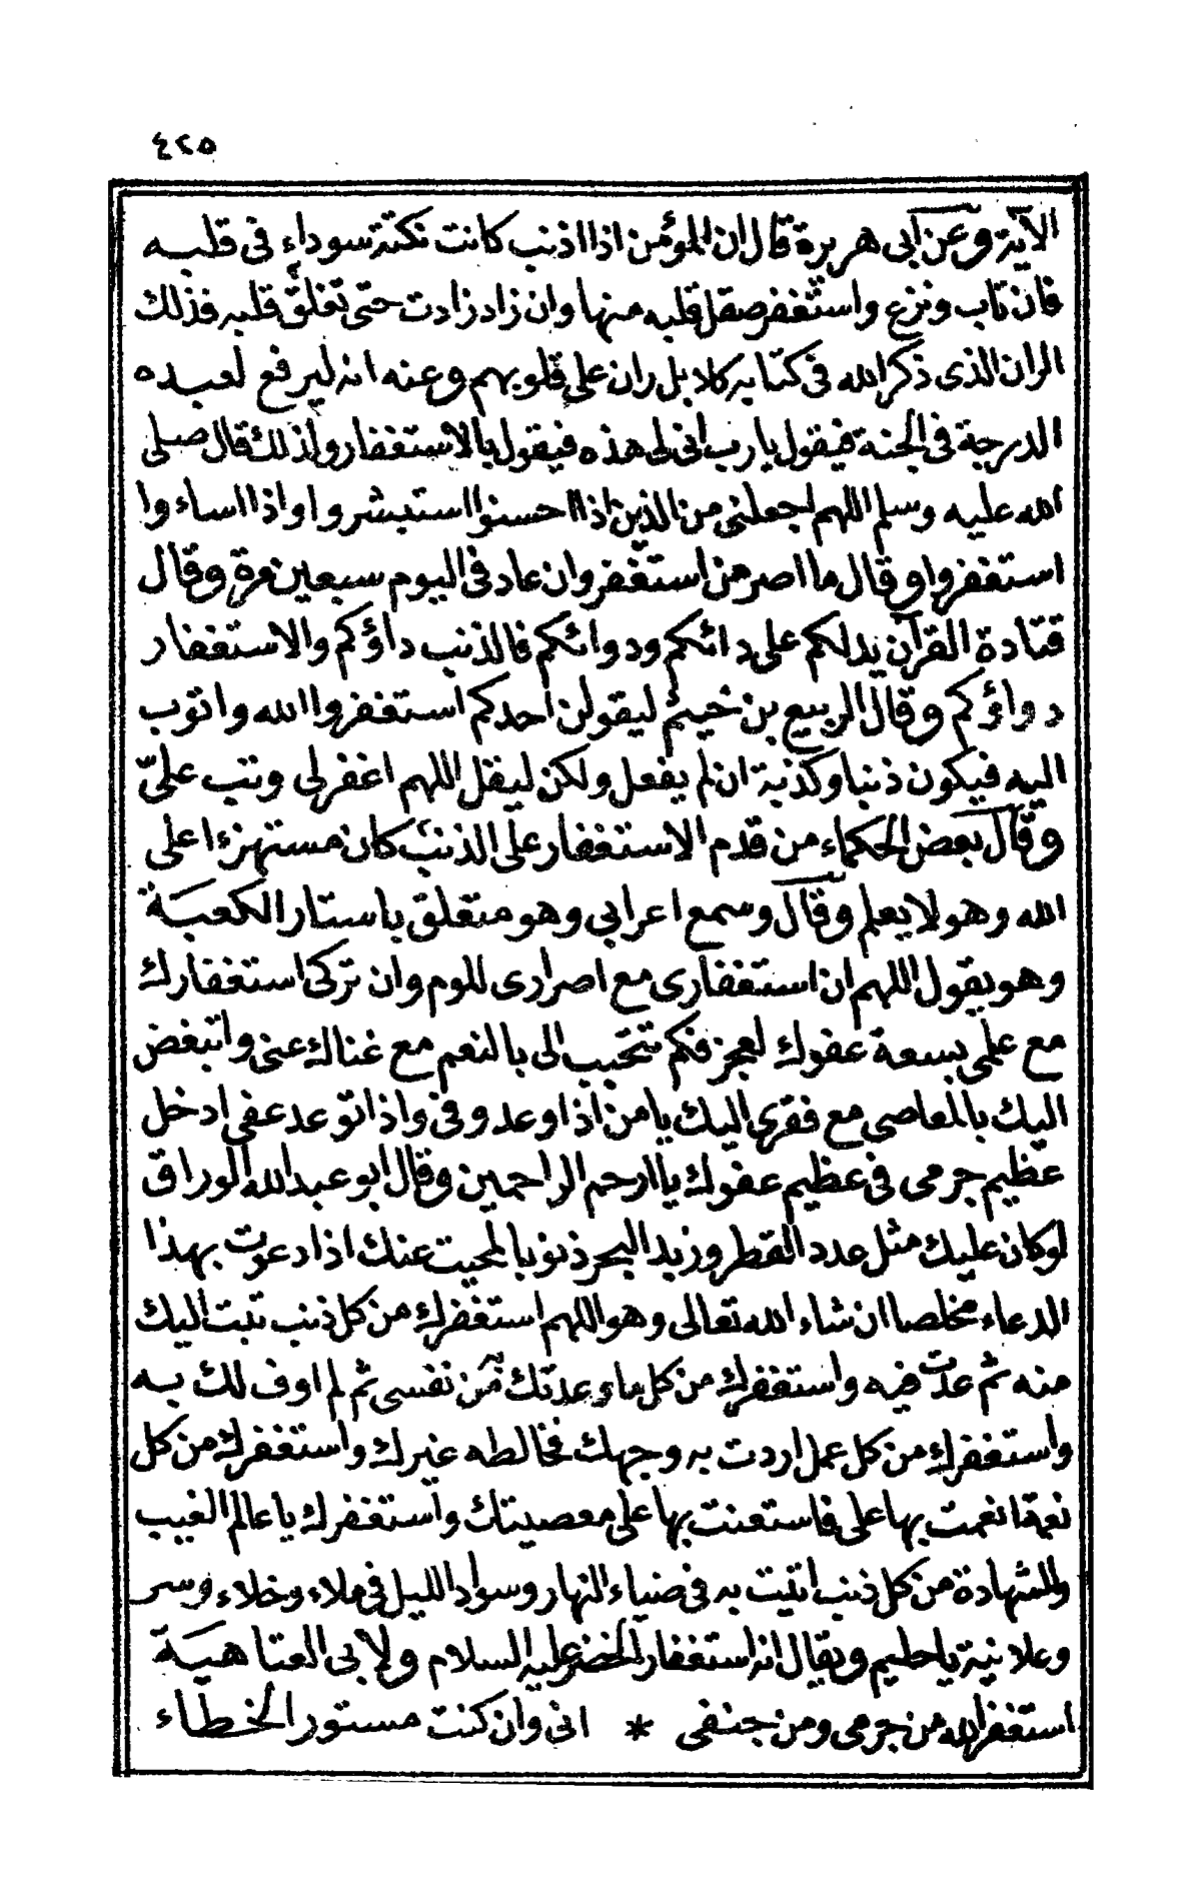 ٤٢٥
الآية وعن أبى هريرة قال ان المؤمن اذا اذنب كانت نكتة سوداء فى قلبه
فان تاب ونزع واستغفر صقل قلبه منها وان زاد زادت حتى تغلق قلبه فذلك
الران الذى ذكر الله فى كتابه كلا بل ران على قلوبهم وعنه انه ليرفع لعبده
الدرجة فى الجنة فيقول يا رب انى لى هذه فيقول بالاستغفار ولذلك قال صلى
الله عليه وسلم اللهم اجعلنى من الذين اذا احسنوا استبشروا واذا اساءوا
استغفروا وقال ما اصر من استغفر وان عاد فى اليوم سبعين مرة وقال
قتادة القرآن يدلكم على دائكم ودوائكم فالذنب داؤكم والاستغفار
دواؤكم وقال الربيع بن خيثم ليقولن احدكم استغفروا الله واتوب
اليه فيكون ذنبا وكذبة ان لم يفعل ولكن ليقل اللهم اغفر لى وتب علىّ
وقال بعض الحكماء من قدم الاستغفار على الذنب كان مستهزءا على
الله وهو لا يعلم وقال وسمع اعرابى وهو متعلق باستار الكعبة
وهو يقول اللهم ان استغفارى مع اصرارى للوم وان تركى استغفارك
مع علمى بسعة عفوك لعجز فكم تتحبب الى بالنعم مع غناك عنى واتبغض
اليك بالمعاصى مع فقرى اليك يا من اذا وعد وفى واذا توعد عفى ادخل
عظيم جرمى فى عظيم عفوك يا ارحم الراحمين وقال ابو عبد الله الوراق
لو كان عليك مثل عدد القطر وزبد البحر ذنوبا لمحيت عنك اذا دعوت بهذا
الدعاء مخلصا ان شاء الله تعالى وهو اللهم استغفرك من كل ذنب تبت اليك
منه ثم عدت فيه واستغفرك من كل ما وعدتك من نفسى ثم لم اوف لك به
واستغفرك من كل عمل اردت به وجهك فخالطه غيرك واستغفرك من كل
نعمة انعمت بها على فاستعنت بها على معصيتك واستغفرك يا عالم الغيب
والشهادة من كل ذنب اتيت به فى ضياء النهار وسواد الليل فى ملاء وخلاء وسر
وعلانية يا حليم ويقال انه استغفار الخضر عليه السلام ولابى العتاهية
استغفر الله من جرمى ومن جنفى * انى وان كنت مستور الخطاء